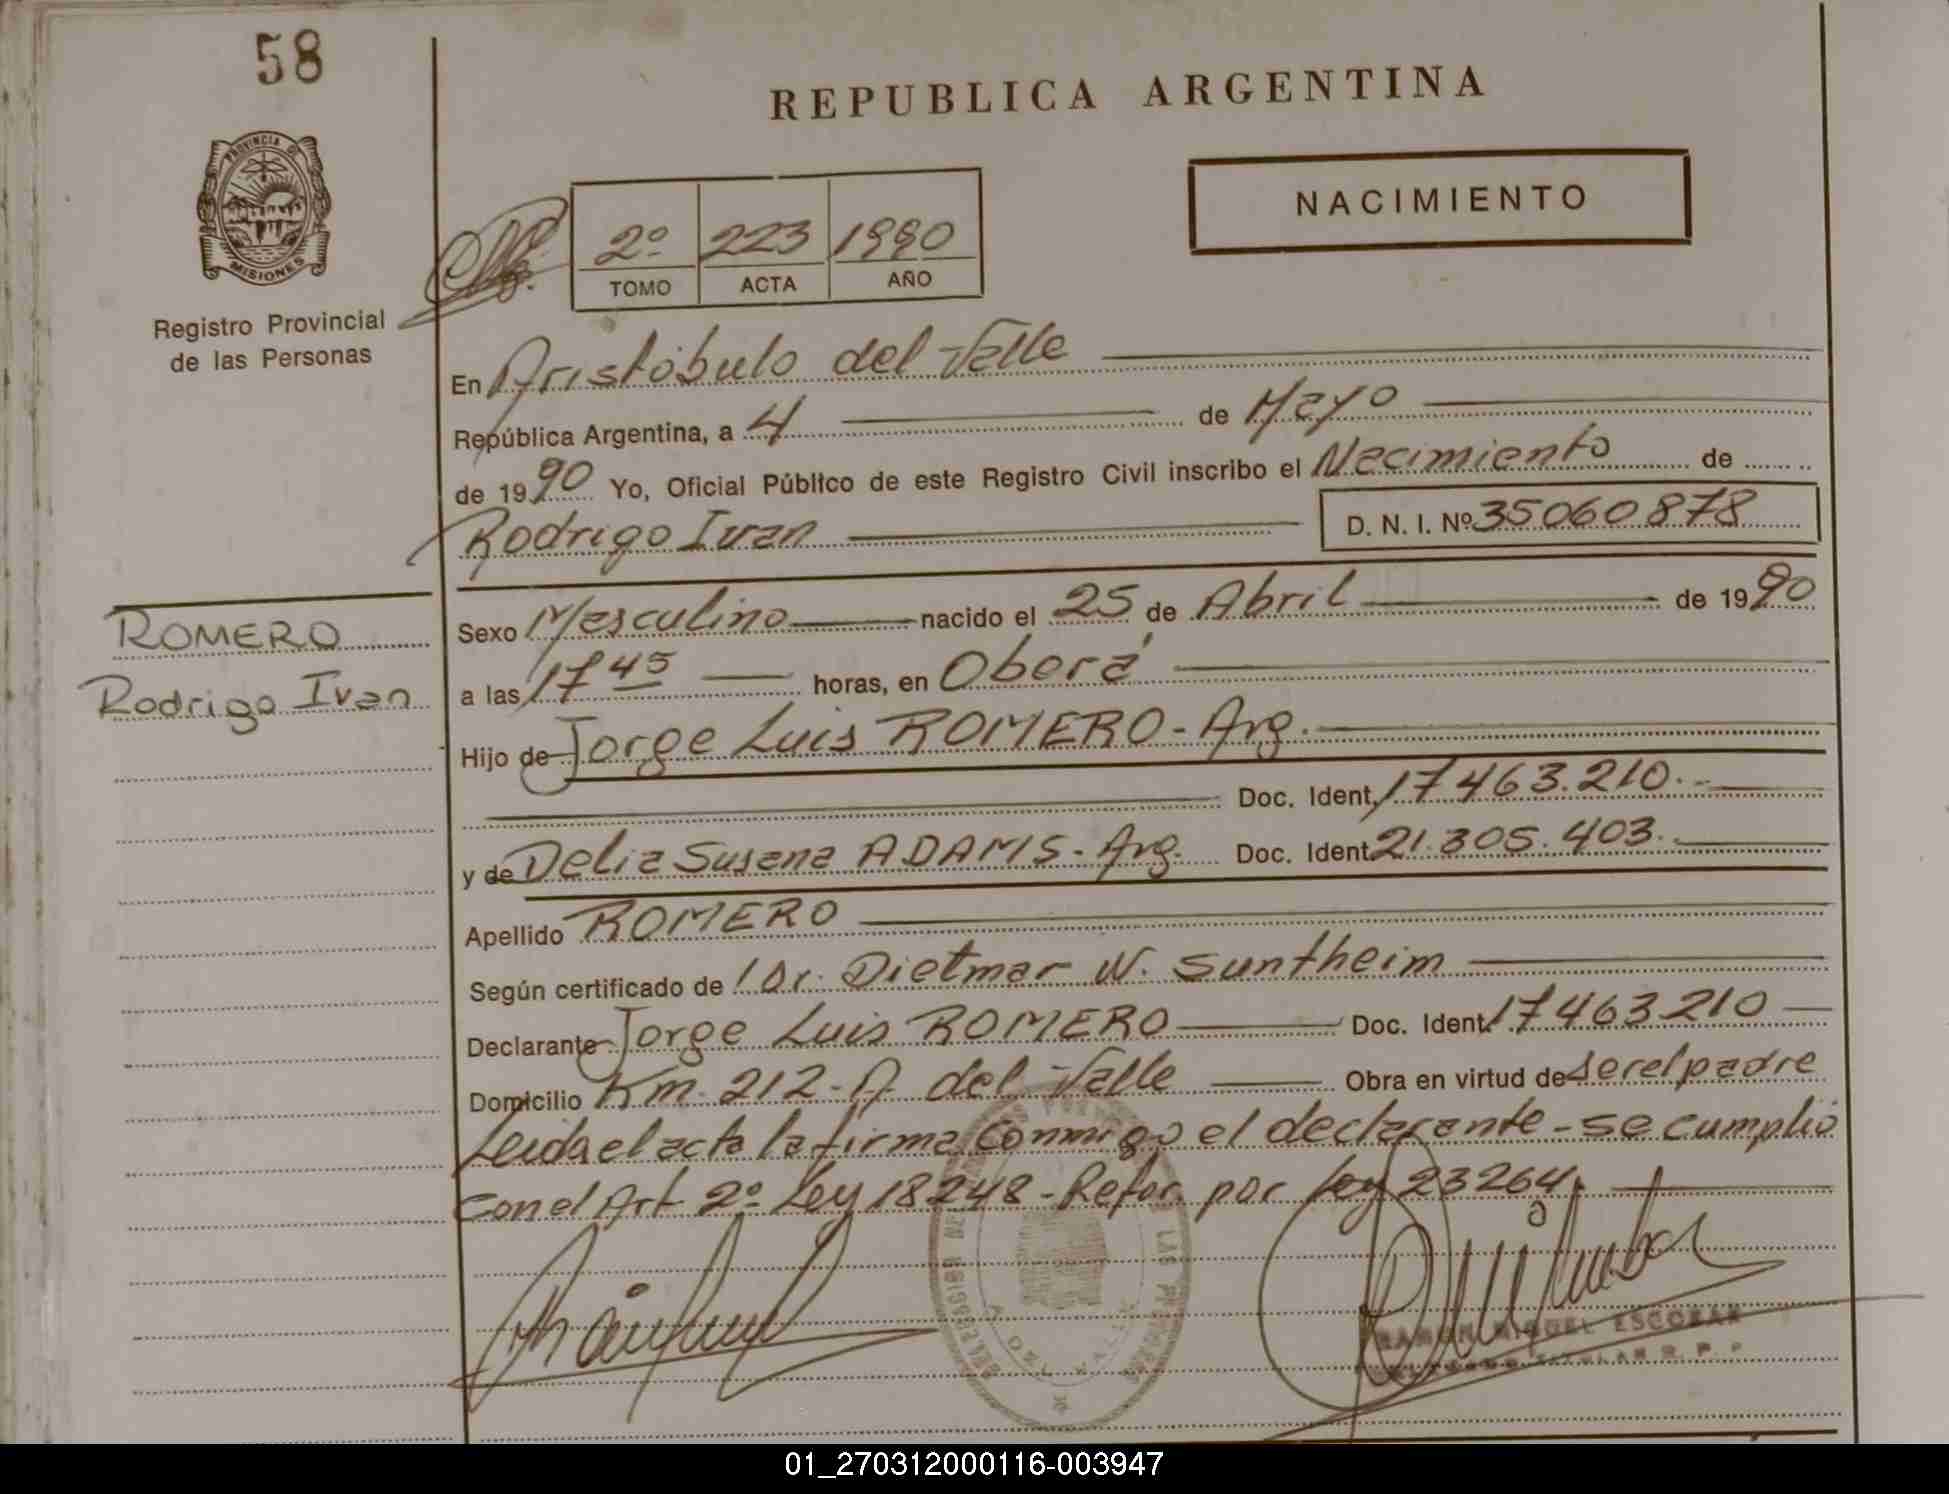 58
REPUBLICA ARGENTINA
NACIMIENTO
PROVINCIA DE
MISIONES
Registro Provincial
de las Personas
2º 223 1990
TOMO ACTA AÑO
En Aristóbulo del Valle
República Argentina, a 4 de Mayo
de 1990 Yo, Oficial Público de este Registro Civil inscribo el Nacimiento de
Rodrigo Ivan D. N. I. Nº 35060878
ROMERO
Rodrigo Ivan
Sexo Masculino nacido el 25 de Abril de 1990
a las 17 45 horas, en Oberá
Hijo de Jorge Luis ROMERO - Arg.
Doc. Ident. 17463.210.-
y de Delia Susana ADAMS - Arg. Doc. Ident. 21.305.403.
Apellido ROMERO
Según certificado de / Dr. Dietmar W. Suntheim
Declarante Jorge Luis ROMERO Doc. Ident. 17463210
Domicilio Km. 212 - A del Valle Obra en virtud de ser el padre
Leida el acta la firma conmigo el declarante - se cumplió
con el Art 2º Ley 18248 - Refor. por Ley 23264.
A. DEL VALLE
RAMON MIGUEL ESCOBAR
TITULAR R. P. P.
01_270312000116-003947